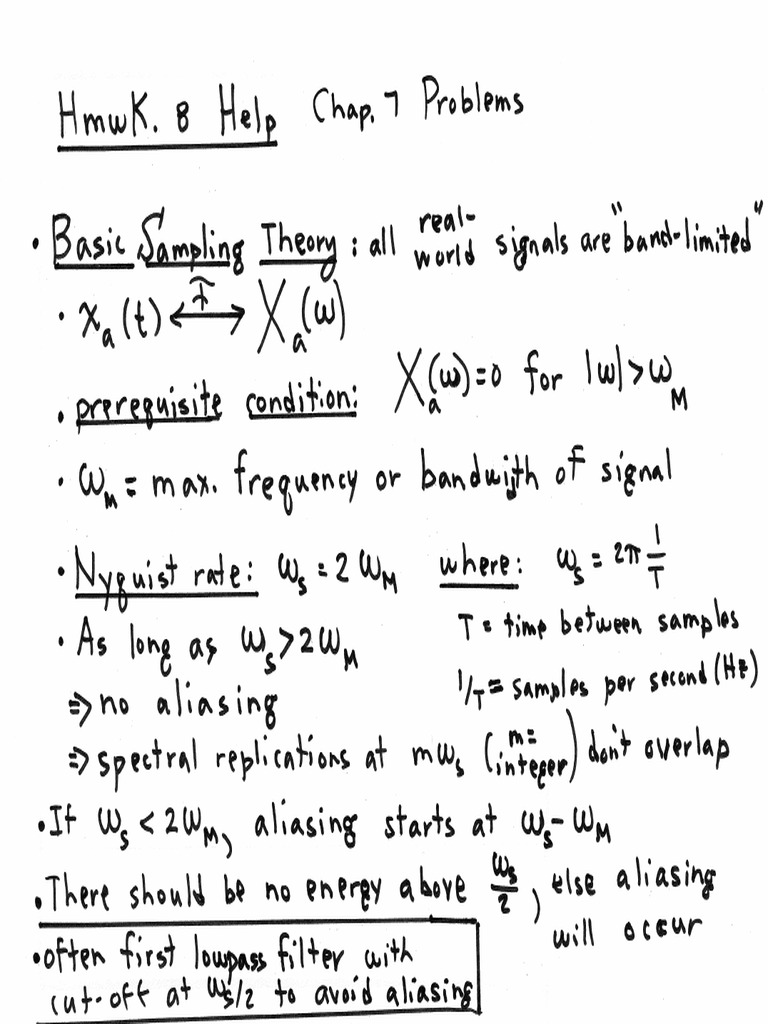 Hmwk. 8 Help Chap. 7 Problems
• Basic Sampling Theory: all real-world signals are "band-limited"
• xₐ(t) ⟷ᶠ Xₐ(ω)
• prerequisite condition: Xₐ(ω)=0 for |ω|>ω_M
• ω_M = max. frequency or bandwith of signal
• Nyquist rate: ω_s = 2ω_M where: ω_s = 2π 1/T
T = time between samples
• As long as ω_s > 2ω_M
1/T = samples per second (Hz)
⇒ no aliasing
⇒ spectral replications at mω_s (m = integer) don't overlap
• If ω_s < 2ω_M, aliasing starts at ω_s - ω_M
• There should be no energy above ω_s/2, else aliasing will occur
• often first lowpass filter with
cut-off at ω_s/2 to avoid aliasing